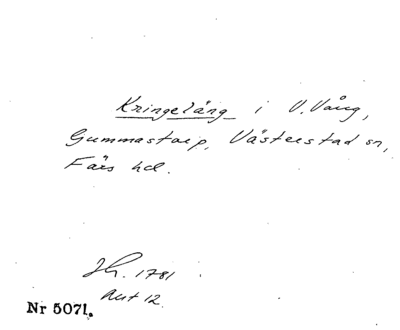 Kringeläng i V. Vång,
Gummastorp, Västerstad sn,
Färs hd.
Jh. 1781
Akt 12.
Nr 5071.